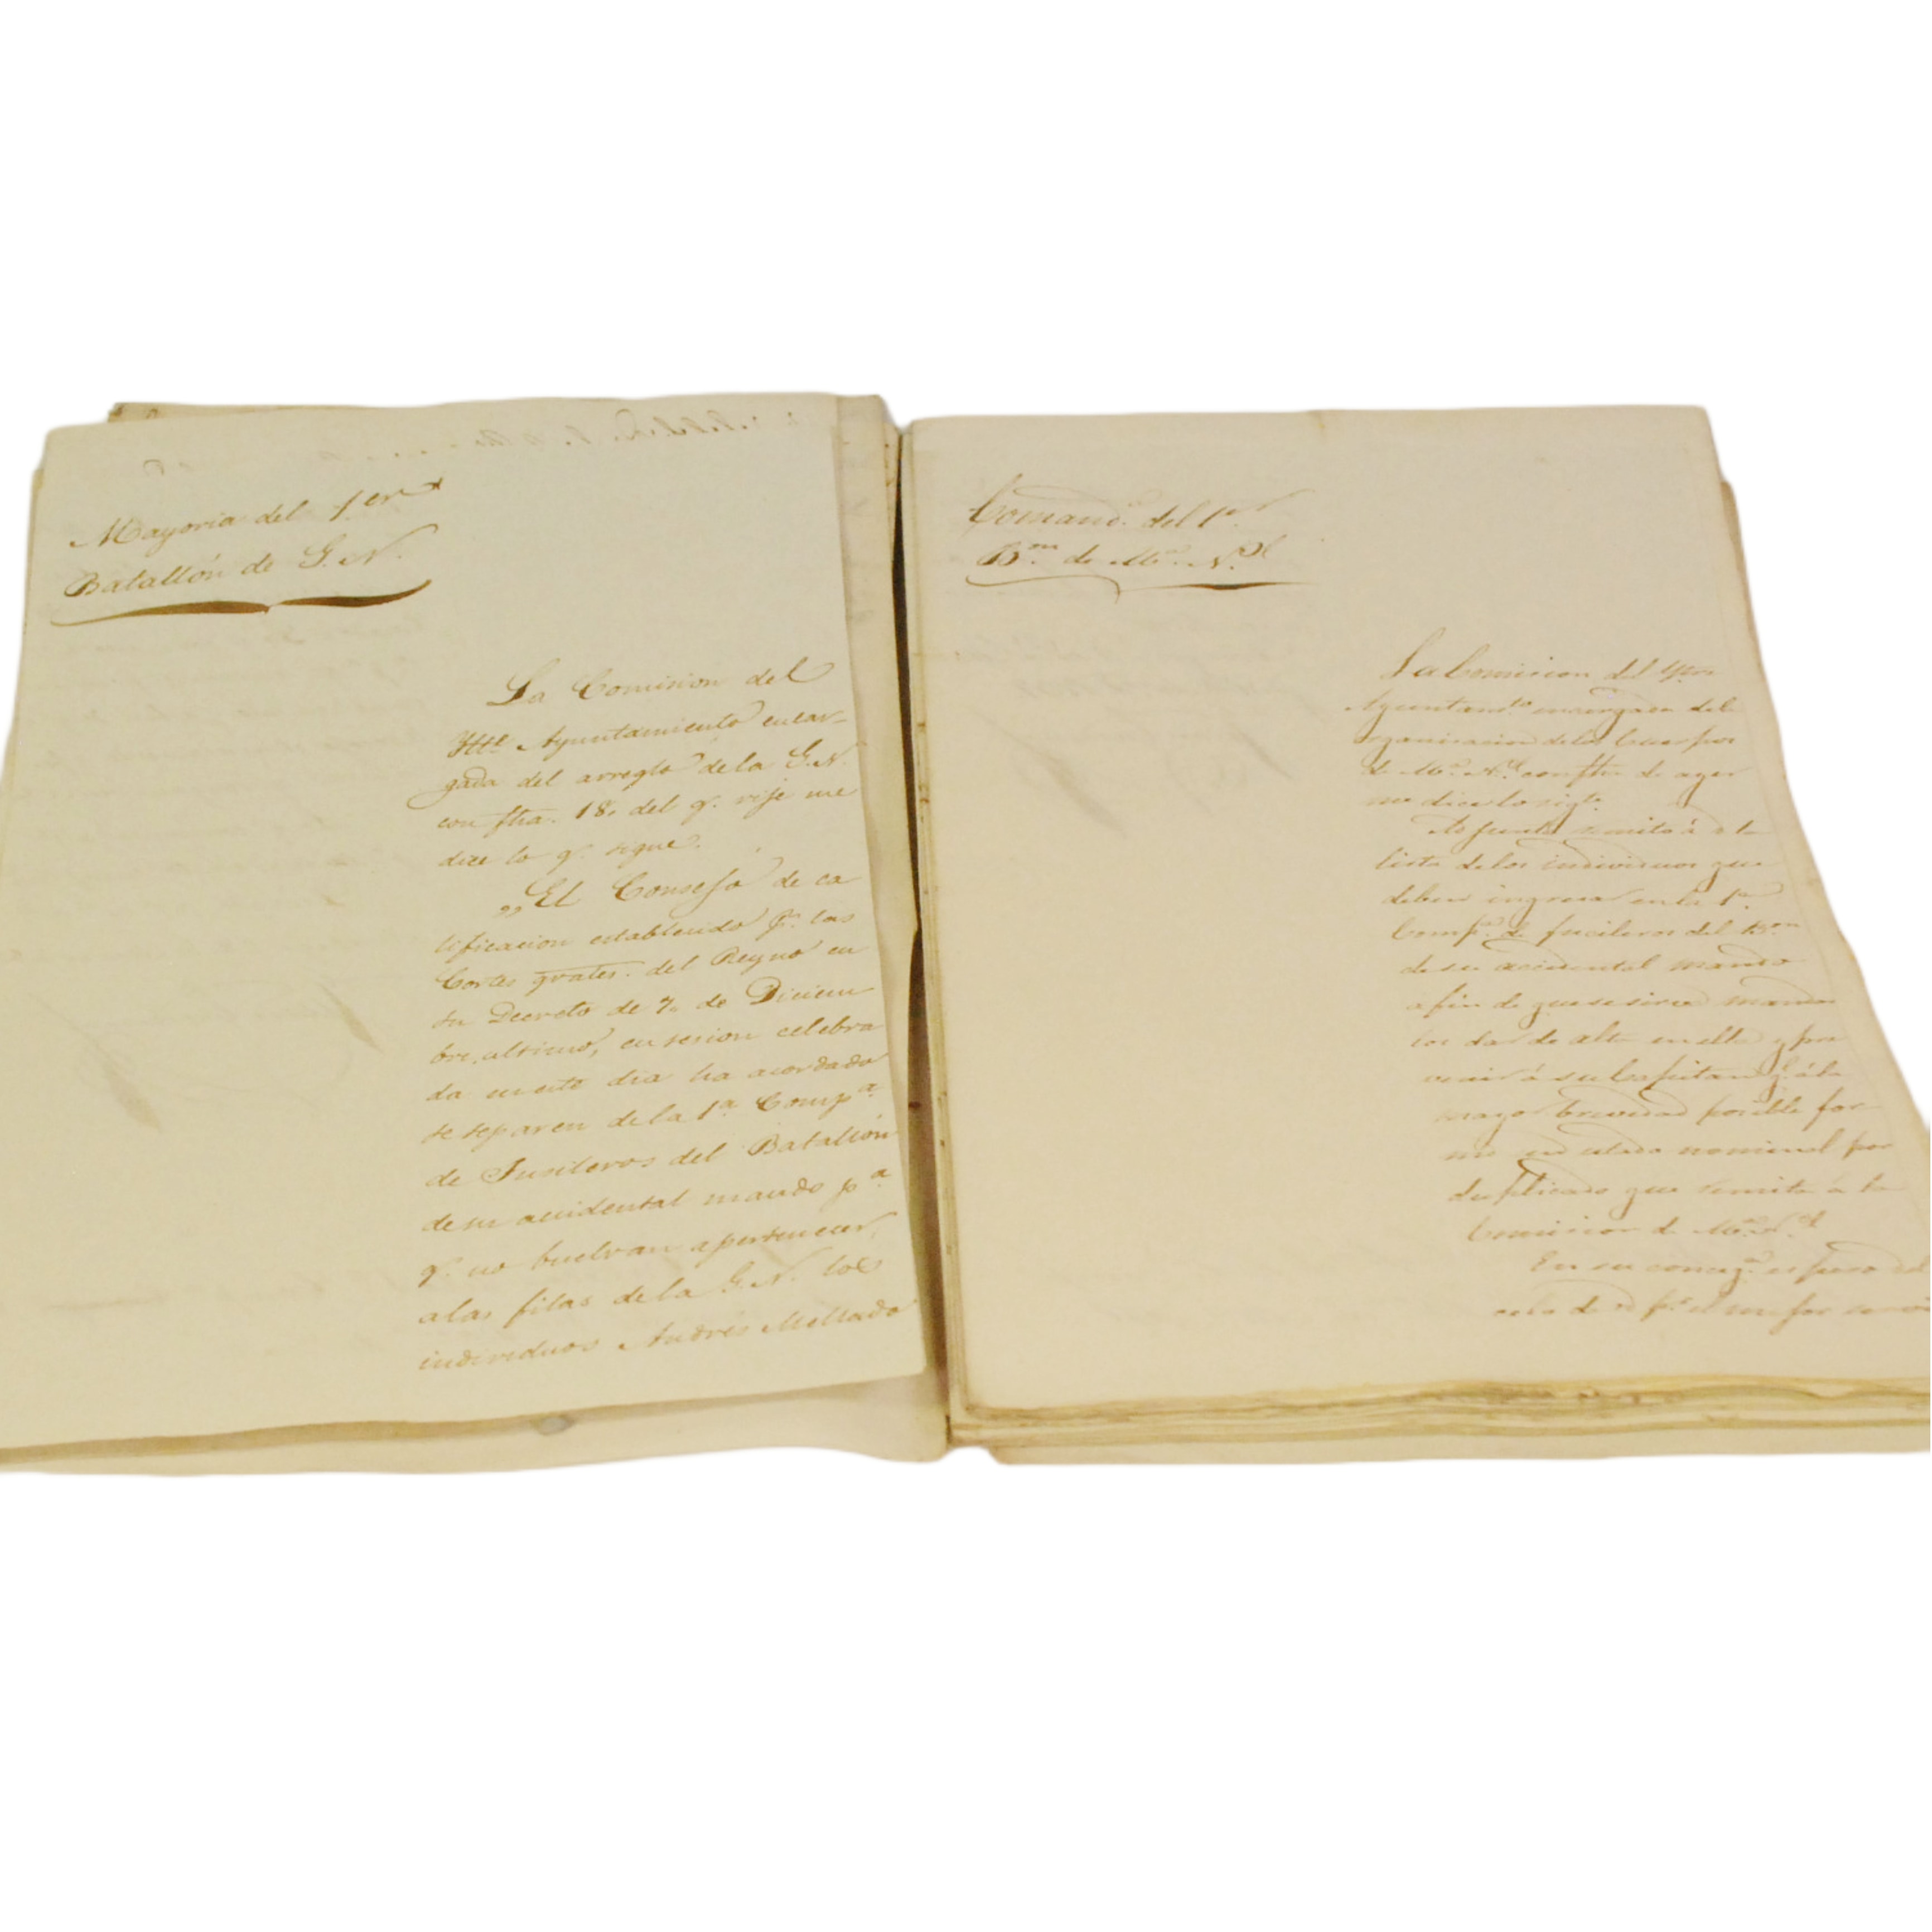 Mayoria del 1.er
Batallón de G. N.
La Comision del
Ytte. Ayuntamiento encar-
gada del arreglo de la G. N.
con fha. 18. del q. rije me
dice lo q. sigue.
„El Consejo de ca
lificacion establecido p.r las
Cortes grales. del Reyno en
su Decreto de 7. de Diciem
bre. ultimo, en sesion celebra
da en este dia ha acordado
se separen de la 1.a Comp.a
de Fusileros del Batallón
de su accidental mando p.a
q. no buelvan a pertenecer,
a las filas de la G. N. los
individuos Andrés Mellado
Comand.a del 1.er
B.on de M.a N.al
La Comision del
Ayuntam.to encargada de la
organizacion de los Cuerpos
de M.a N.al con fha. de ayer
me dice lo sigte.
Adjunta remito á V. la
lista de los individuos que
deben ingresar en la 1.a
Comp.a de fucileros del B.on
de su accidental mando
a fin de que se sirva mandar
los dar de alta en ella y pre
venir á su Capitan q.e á la
mayor brevedad posible for
me un estado nominal por
duplicado que remita á la
Comision de M.a N.al
En su conseq.a espero del
celo de V. p.r el mejor servi